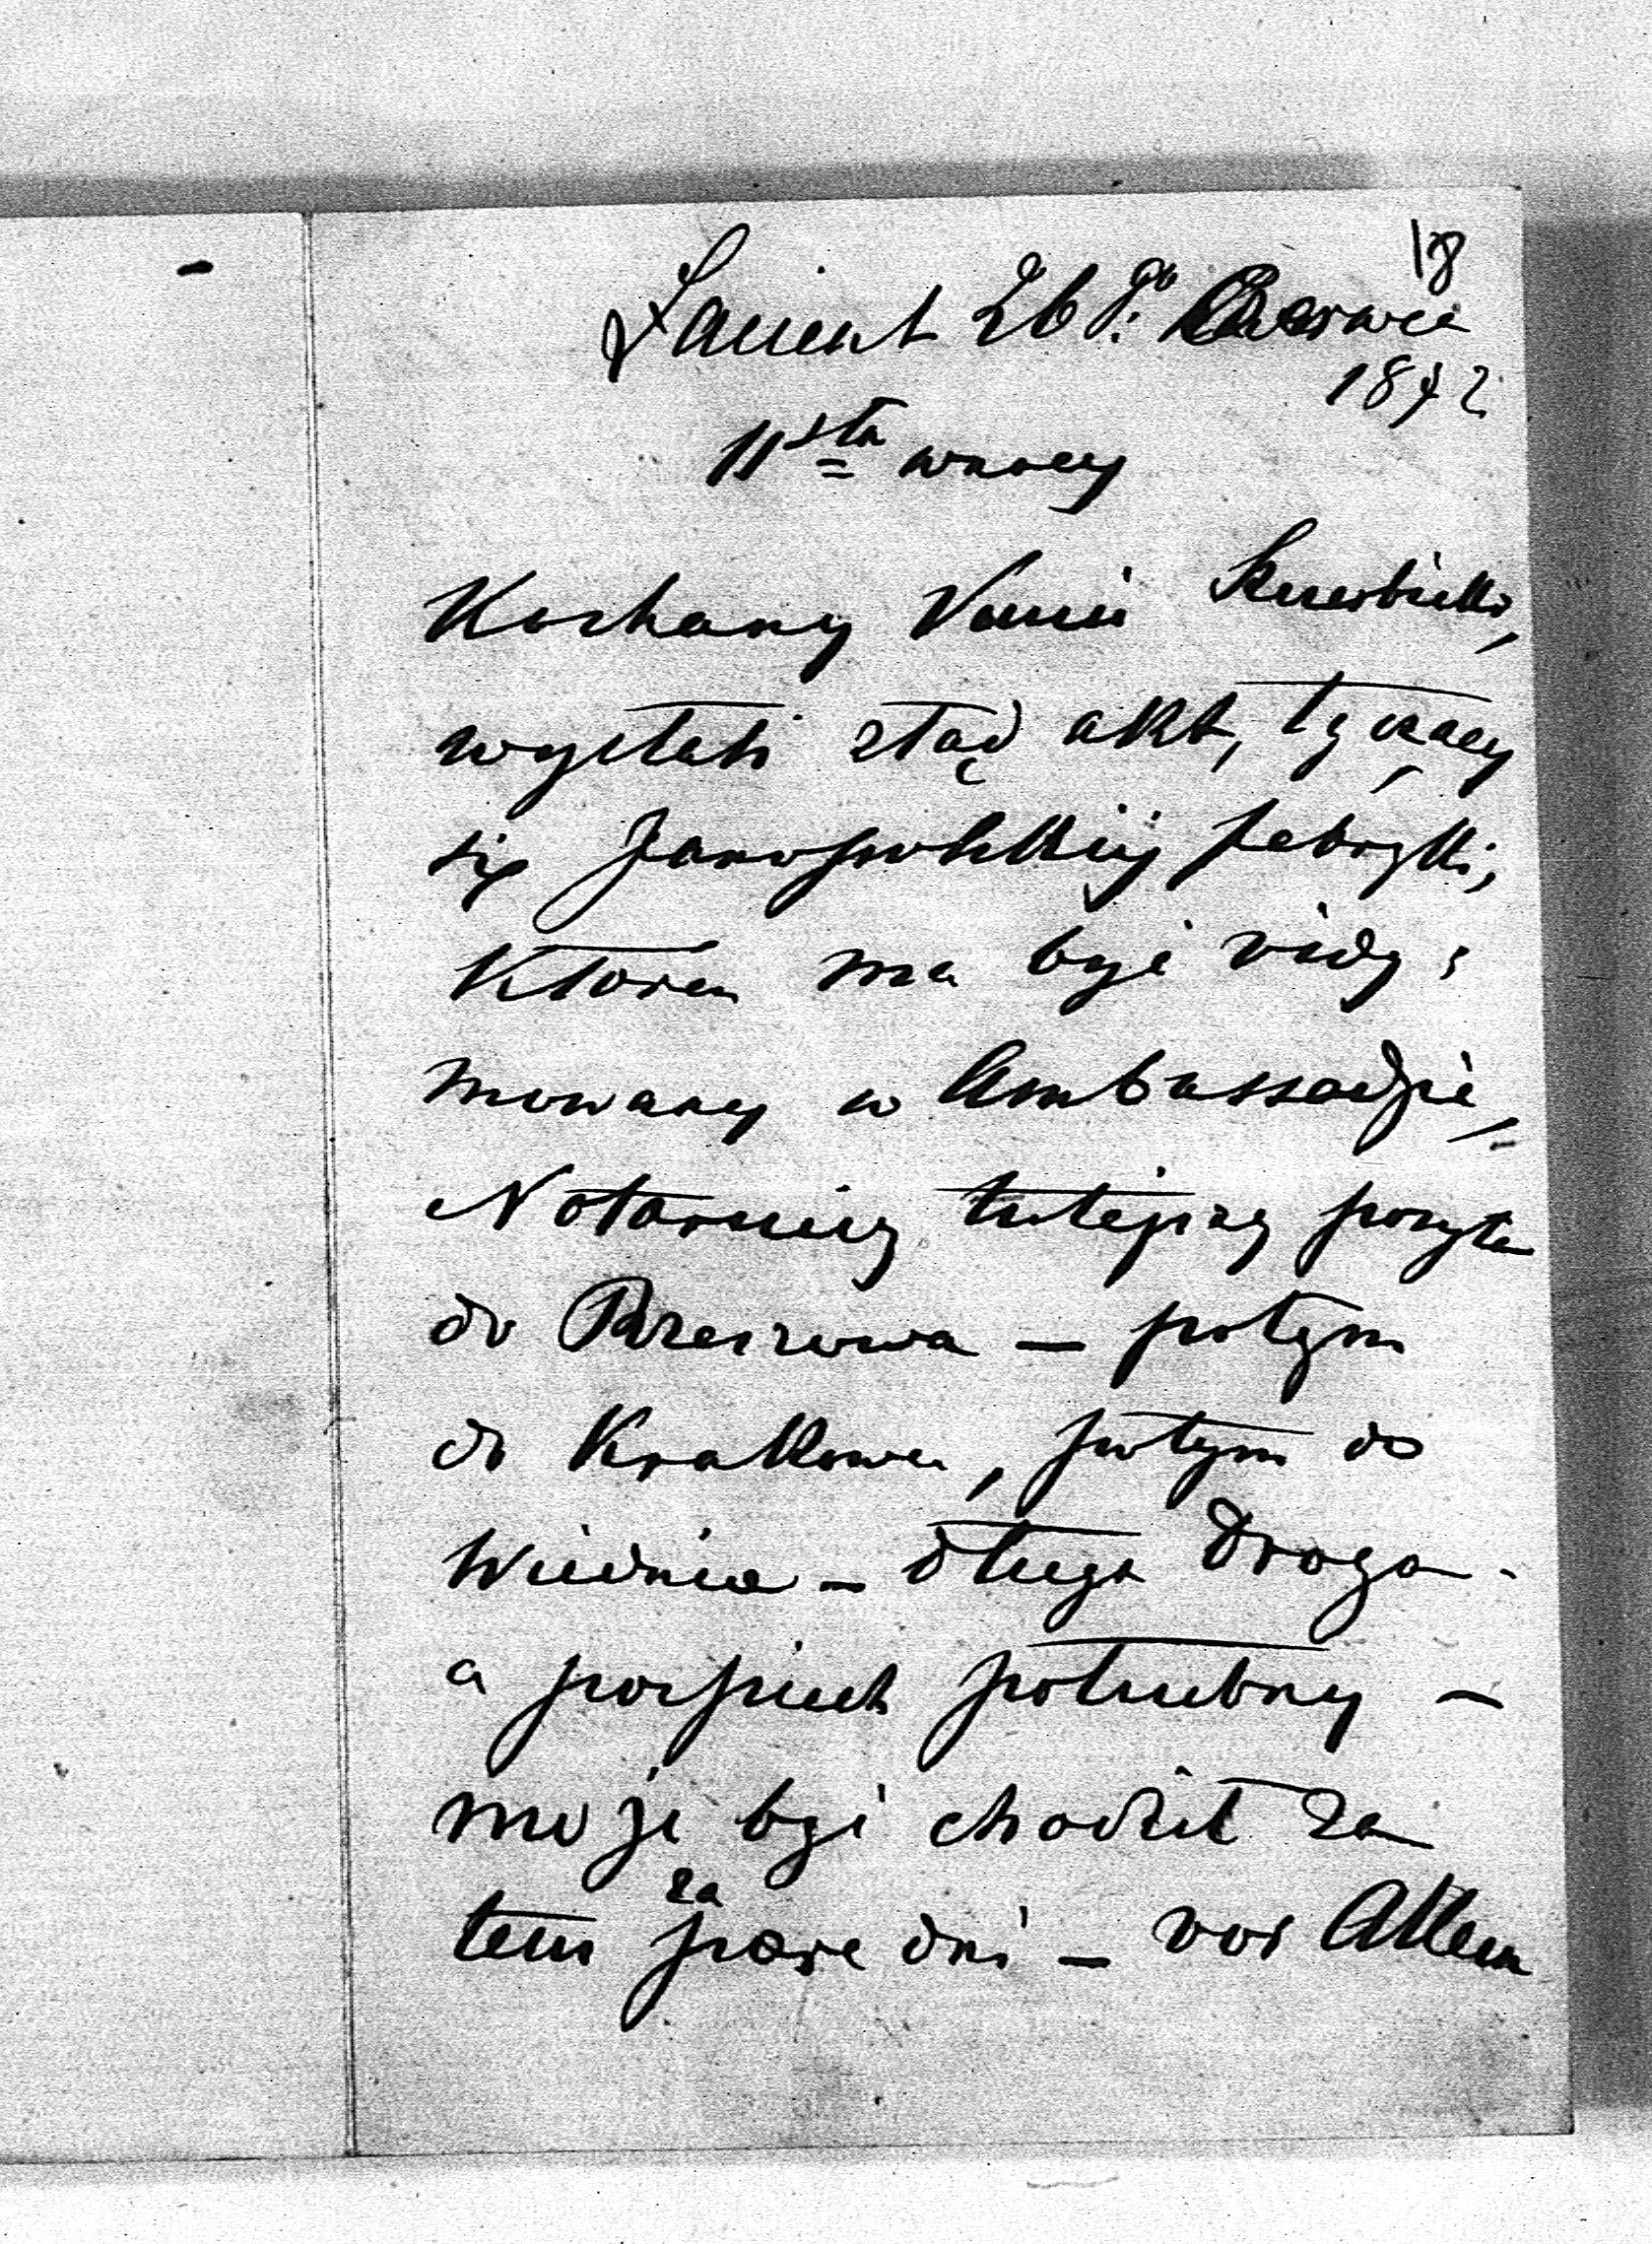 18
Łańcut 26go Czerwca
1872
11sta w nocy
Kochany Panie
wysłali ztąd akt, tyczący
się Januszpolskiej fabryki,
która ma być vidy:
mowany w Ambassadzie,
Notariusz tutejszy posyła
do Rzeszowa — potym
do Krakowa, potym do
Wiednia — długa droga -
a pospiech potrzebny —
może być chodził za
tem za parę dni — vor Allem